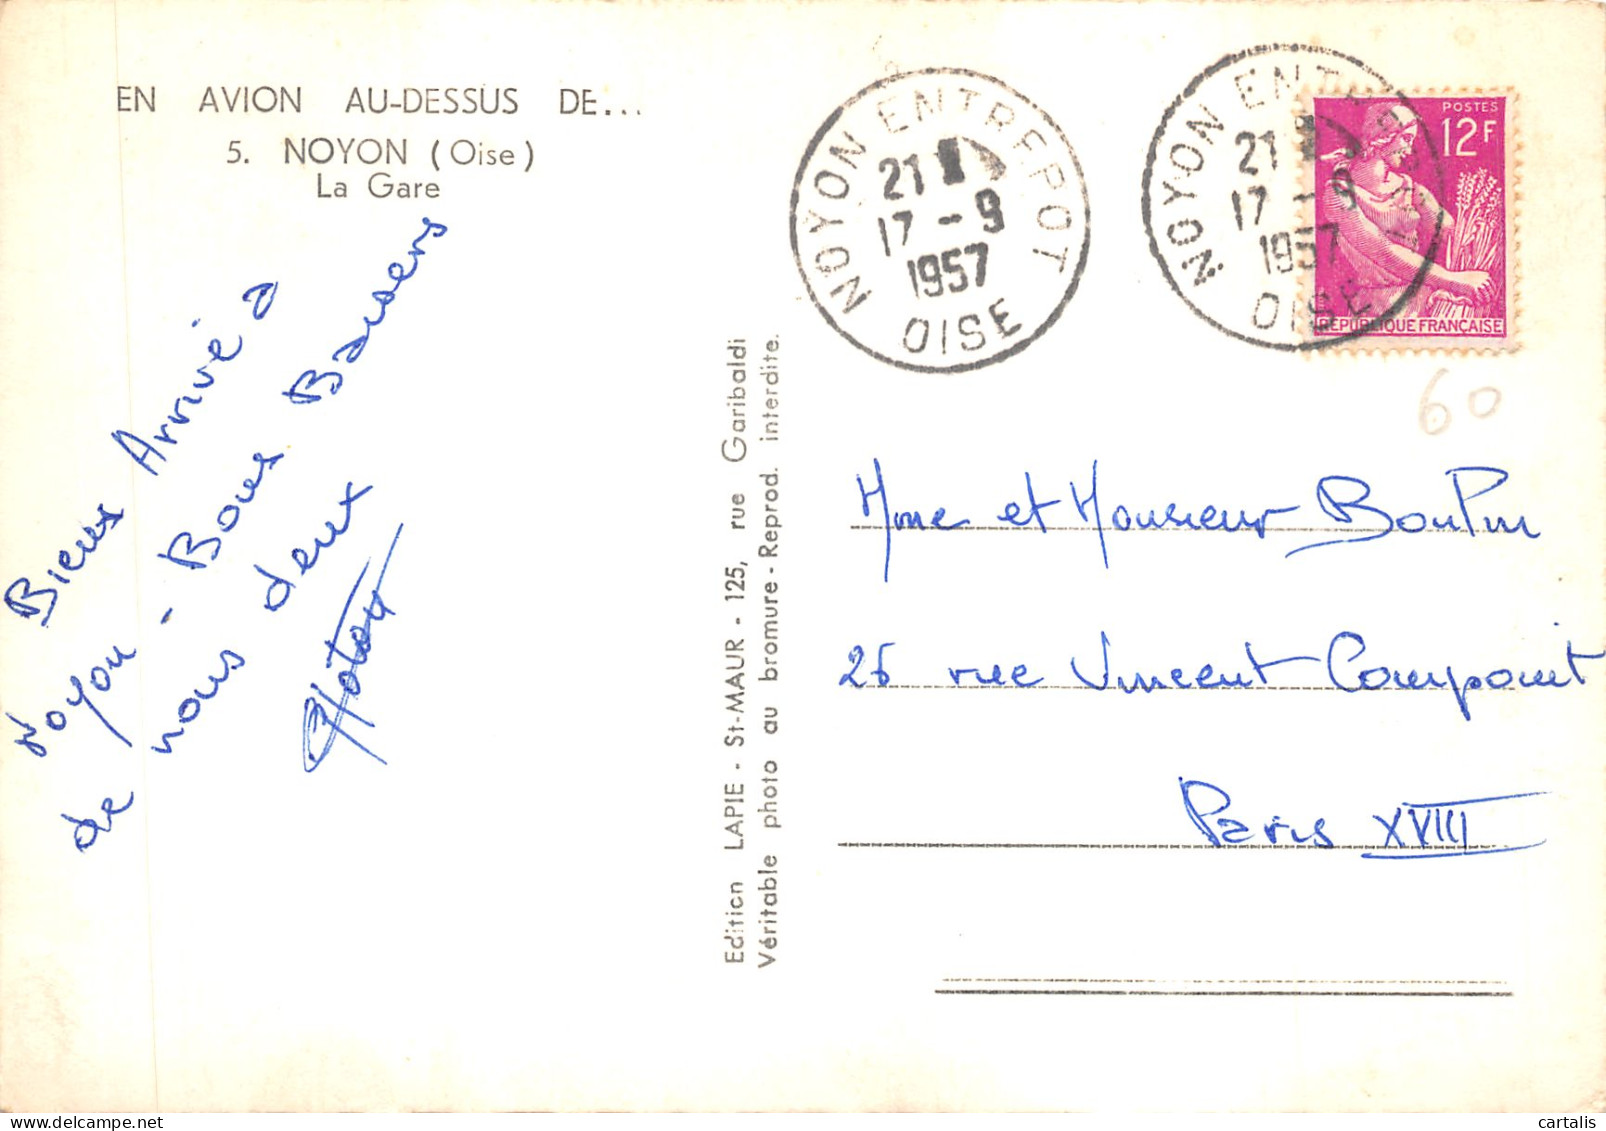 EN AVION AU-DESSUS DE...
5. NOYON (Oise)
La Gare
Bien Arrivé a
Noyon - Bons Baisers
de nous deux
Edition LAPIE - St-MAUR - 125, rue Garibaldi
Véritable photo au bromure - Reprod. interdite.
NOYON ENTREPOT
21
17 - 9
1957
OISE
NOYON ENTREPOT
21
17 - 9
1957
OISE
POSTES
12F
REPUBLIQUE FRANÇAISE
60
Mme et Monsieur
25 rue Vincent Compoint
Paris XVIII
cartalis